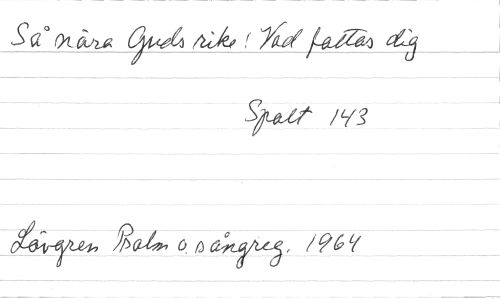 Så nära Guds rike! Vad fattas dig
Spalt 143
Lövgren Psalm o. sångreg. 1964